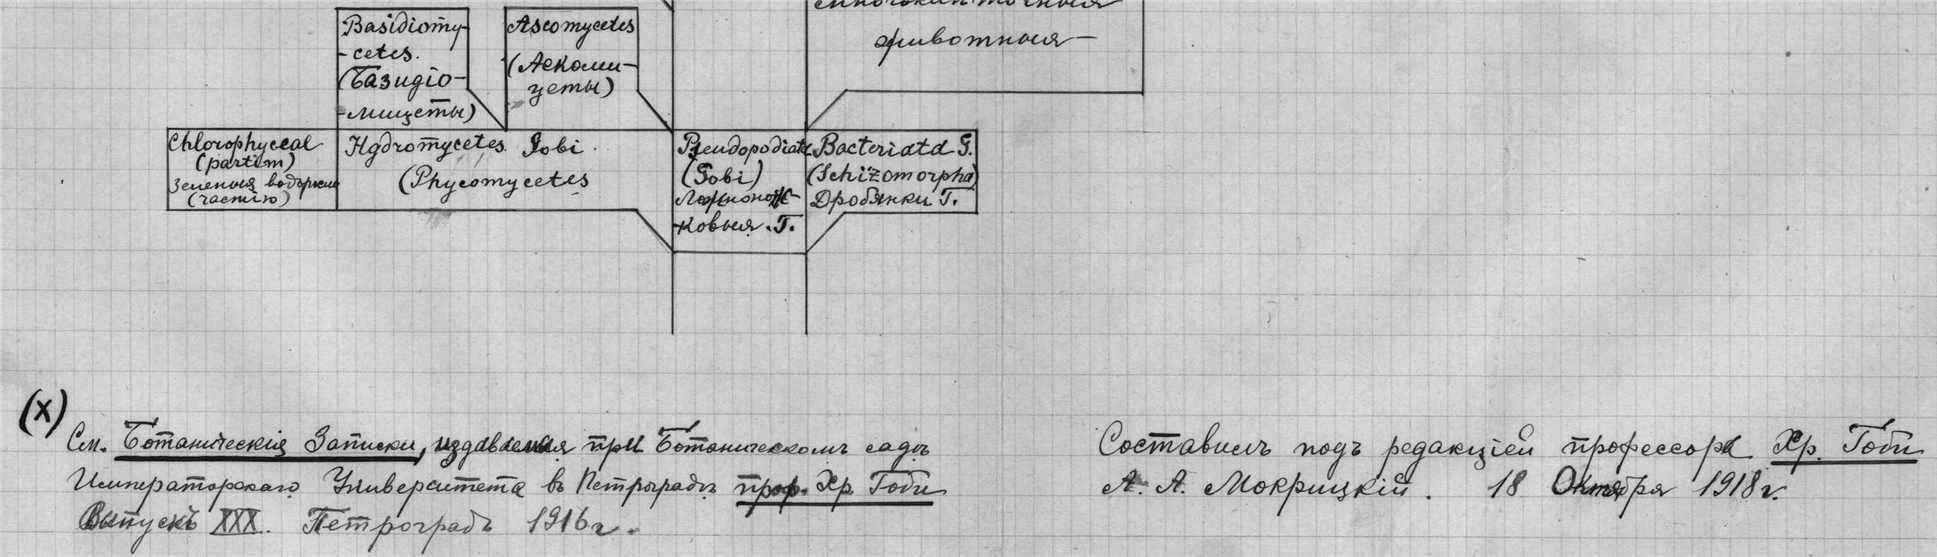 Basidiomy-
-cetes.
(Базидіо-
-мицеты)
Ascomycetes
(Аскоми-
цеты)
животныя
Chlorophyceae
(partim)
Зеленыя водоросли
(частію)
Hydromycetes Gobi.
(Phycomycetes
Pseudopodiata
(Gobi)
Ложноножк-
-ковыя. Г.
Bacteriata G.
(Schizomorpha)
Дробянки Г.
(X)
См. Ботаническія Записки, издаваемыя при Ботаническомъ садѣ
Императорскаго Университета въ Петроградѣ проф. Хр. Гоби
Выпускъ XXX. Петроградъ 1916 г.
Составилъ подъ редакціей профессора Хр. Гоби
А. А. Мокрицкій. 18 Октября 1918 г.